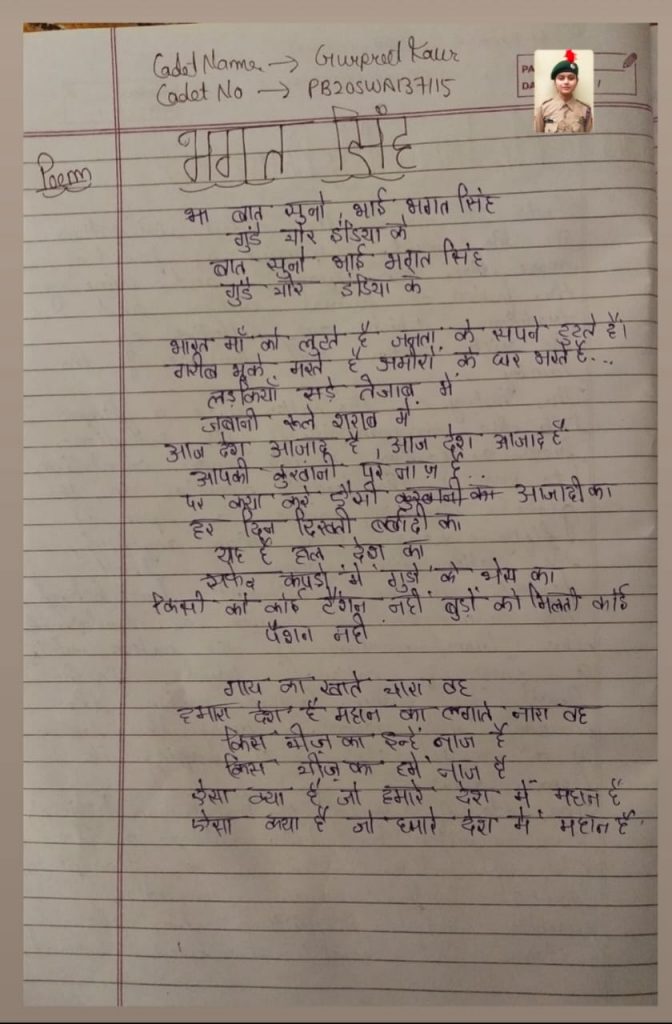 Cadet Name → Gurpreet Kaur
Cadet No → PB20SWN137115
PA
DA
भगत सिंह
Poem
भा बात सुनो, भाई भगत सिंह
गुंडे चोर इंडिया के
बात सुनो भाई भगत सिंह
गुंडे चोर इंडिया के
भारत माँ को लुटते है जनता के सपने टुटते हैं।
गरीब भूके मरते है अमीरो के घर भरते है...
लड़कियाँ सड़े तेजाब में
जबानी रूले शराब में
आज देश आजाद है, आज देश आजाद है
आपकी कुरबानी पर नाज़ है..
पर क्या करे इैसी कुरबानी का आजादी का
हर दिन दिखती बर्बादी का
यह है हाल देश का
सफेद कपड़ो में गुंडो के भेस का
किसी को कोई टैंशन नहीं बुड़ों को मिलती कोई
पैंशन नही
गाय का खाते चारा वह
हमारा देश है महान का लगाते नारा वह
किस चीज़ का इन्हें नाज है
किस चीज़ का हमें नाज है
ऐसा क्या है जो हमारे देश में महान है
ऐसा क्या है जो हमारे देश में महान है